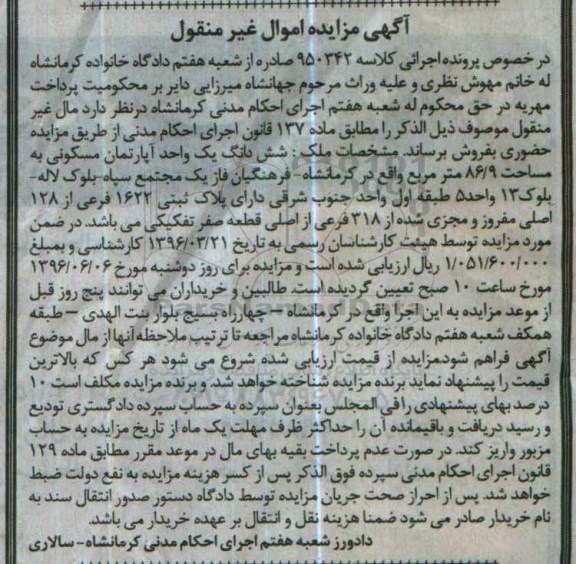 آگهی مزایده اموال غیر منقول
در خصوص پرونده اجرائی کلاسه ۹۵۰۳۴۲ صادره از شعبه هفتم دادگاه خانواده کرمانشاه
له خانم مهوش نظری و علیه وراث مرحوم جهانشاه میرزایی دایر بر محکومیت پرداخت
مهریه در حق محکوم له شعبه هفتم اجرای احکام مدنی کرمانشاه درنظر دارد مال غیر
منقول موصوف ذیل الذکر را مطابق ماده ۱۳۷ قانون اجرای احکام مدنی از طریق مزایده
حضوری بفروش برساند. مشخصات ملک : شش دانگ یک واحد آپارتمان مسکونی به
مساحت ۸۶/۹ متر مربع واقع در کرمانشاه-فرهنگیان فاز یک مجتمع سپاه-بلوک لاله-
بلوک۱۳ واحد۵ طبقه اول واحد جنوب شرقی دارای پلاک ثبتی ۱۶۲۲ فرعی از ۱۲۸
اصلی مفروز و مجزی شده از ۳۱۸ فرعی از اصلی قطعه صفر تفکیکی می باشد. در ضمن
مورد مزایده توسط هیئت کارشناسان رسمی به تاریخ ۱۳۹۶/۰۳/۲۱ کارشناسی و بمبلغ
۱/۰۵۱/۶۰۰/۰۰۰ ریال ارزیابی شده است و مزایده برای روز دوشنبه مورخ ۱۳۹۶/۰۶/۰۶
مورخ ساعت ۱۰ صبح تعیین گردیده است. طالبین و خریداران می توانند پنج روز قبل
از موعد مزایده به این اجرا واقع در کرمانشاه – چهارراه بسیج بلوار بنت الهدی – طبقه
همکف شعبه هفتم دادگاه خانواده کرمانشاه مراجعه تا ترتیب ملاحظه آنها از مال موضوع
آگهی فراهم شود.مزایده از قیمت ارزیابی شده شروع می شود هر کس که بالاترین
قیمت را پیشنهاد نماید برنده مزایده شناخته خواهد شد. و برنده مزایده مکلف است ۱۰
درصد بهای پیشنهادی را فی المجلس بعنوان سپرده به حساب سپرده دادگستری تودیع
و رسید دریافت و باقیمانده آن را حداکثر ظرف مهلت یک ماه از تاریخ مزایده به حساب
مزبور واریز کند. در صورت عدم پرداخت بقیه بهای مال در موعد مقرر مطابق ماده ۱۲۹
قانون اجرای احکام مدنی سپرده فوق الذکر پس از کسر هزینه مزایده به نفع دولت ضبط
خواهد شد. پس از احراز صحت جریان مزایده توسط دادگاه دستور صدور انتقال سند به
نام خریدار صادر می شود ضمنا هزینه نقل و انتقال بر عهده خریدار می باشد.
دادورز شعبه هفتم اجرای احکام مدنی کرمانشاه- سالاری